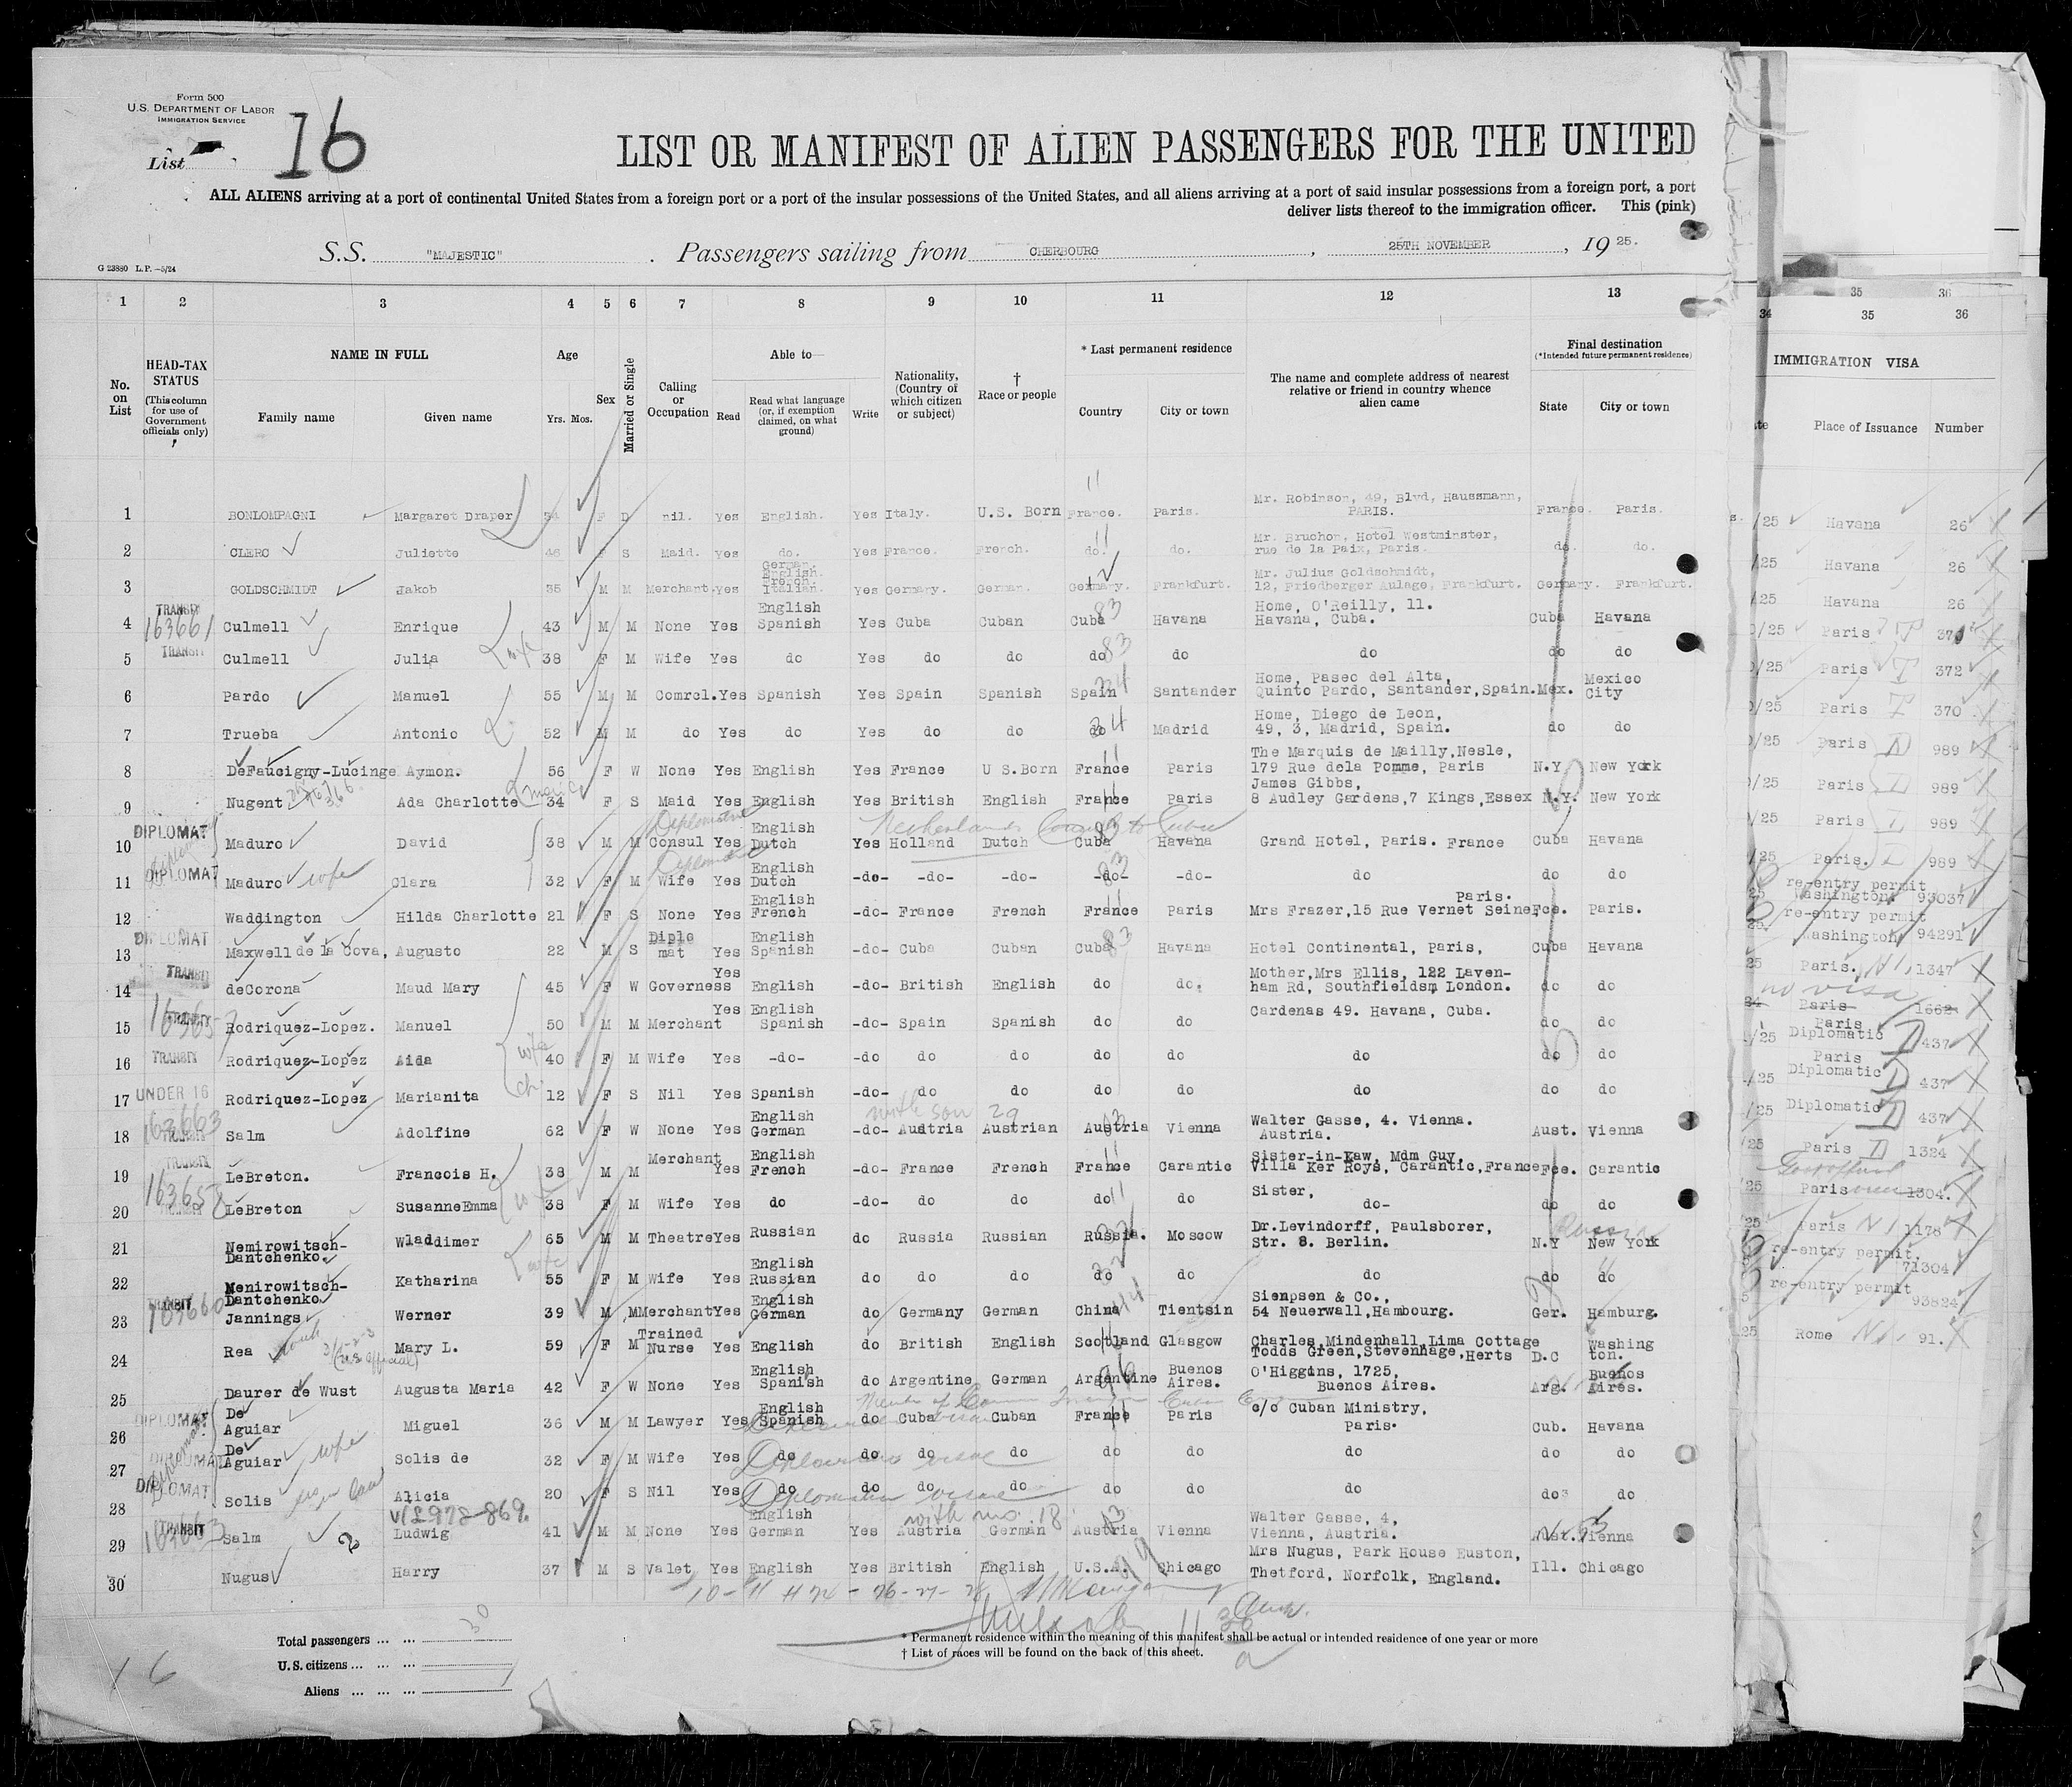 Form 500
U.S. DEPARTMENT OF LABOR
IMMIGRATION SERVICE
List 16
LIST OR MANIFEST OF ALIEN PASSENGERS FOR THE UNITED
ALL ALIENS arriving at a port of continental United States from a foreign port or a port of the insular possessions of the United States, and all aliens arriving at a port of said insular possessions from a foreign port, a port
deliver lists thereof to the immigration officer. This (pink)
S.S. "MAJESTIC" . Passengers sailing from CHERBOURG , 25TH NOVEMBER , 1925.
G 23880 L.P.—5/24
1 2 3 4 5 6 7 8 9 10 11 12 13 35 36
34 35 36
No. on List
HEAD-TAX STATUS (This column for use of Government officials only)
NAME IN FULL Family name Given name
Age Yrs. Mos.
Sex
Married or Single
Calling or Occupation
Able to— Read Read what language (or, if exemption claimed, on what ground) Write
Nationality, (Country of which citizen or subject)
† Race or people
* Last permanent residence Country City or town
The name and complete address of nearest relative or friend in country whence alien came
Final destination (*Intended future permanent residence) State City or town
IMMIGRATION VISA Place of Issuance Number
1 BONLOMPAGNI Margaret Draper 34 F D nil. Yes English. Yes Italy. U.S. Born France. Paris. Mr. Robinson, 49, Blvd, Haussmann, PARIS. France. Paris.
2 CLERC Juliette 46 F S Maid. Yes do. Yes France. French. do. do. Mr. Bruchon, Hotel Westminster, rue de la Paix, Paris. do. do.
3 GOLDSCHMIDT Jakob 35 M M Merchant. Yes German. English. French. Italian. Yes Germany. German. Germany. Frankfurt. Mr. Julius Goldschmidt, 12, Friedberger Aulage, Frankfurt. Germany. Frankfurt.
4 TRANSIT 163661 Culmell Enrique 43 M M None Yes English Spanish Yes Cuba Cuban Cuba Havana Home, O'Reilly, 11. Havana, Cuba. Cuba Havana
5 TRANSIT Culmell Julia wife 38 F M Wife Yes do Yes do do do do do do do
6 Pardo Manuel 55 M M Comrcl. Yes Spanish Yes Spain Spanish Spain Santander Home, Paseo del Alta, Quinto Pardo, Santander, Spain. Mex. Mexico City
7 Trueba Antonio 52 M M do Yes do Yes do do do Madrid Home, Diego de Leon, 49, 3, Madrid, Spain. do do
8 DeFaucigny-Lucinge Aymon. 56 F W None Yes English Yes France U S.Born France Paris The Marquis de Mailly,Nesle, 179 Rue dela Pomme, Paris N.Y New York
9 Nugent Ada Charlotte 34 F S Maid Yes English Yes British English France Paris James Gibbs, 8 Audley Gardens,7 Kings,Essex N.Y. New York
10 DIPLOMAT Maduro David 38 M M Consul Yes English Dutch Yes Holland Dutch Cuba Havana Grand Hotel, Paris. France Cuba Havana
11 DIPLOMAT Maduro wife Clara 32 F M Wife Yes English Dutch -do- -do- -do- -do- -do- do do do
12 Waddington Hilda Charlotte 21 F S None Yes English French -do- France French France Paris Mrs Frazer,15 Rue Vernet Seine Paris. Fce. Paris.
13 DIPLOMAT Maxwell de la Cova, Augusto 22 M S Diplomat Yes English Spanish -do- Cuba Cuban Cuba Havana Hotel Continental, Paris, Cuba Havana
14 TRANSIT deCorona Maud Mary 45 F W Governess Yes English -do- British English do do. Mother,Mrs Ellis, 122 Lavenham Rd, Southfieldsm London. do do
15 TRANSIT Rodriquez-Lopez. Manuel 50 M M Merchant Yes English Spanish -do- Spain Spanish do do Cardenas 49. Havana, Cuba. do do
16 TRANSIT Rodriquez-Lopez Aida wife 40 F M Wife Yes -do- -do- do do do do do do do
17 UNDER 16 Rodriquez-Lopez Marianita ch. 12 F S Nil Yes Spanish -do- do do do do do do do
with son 29
18 163663 TRANSIT Salm Adolfine 62 F W None Yes English German -do- Austria Austrian Austria Vienna Walter Gasse, 4. Vienna. Austria. Aust. Vienna
19 TRANSIT LeBreton. Francois H. 38 M M Merchant Yes English French -do- France French France Carantic Sister-in-Law, Mdm Guy, Villa Ker Roys, Carantic,France Fce. Carantic
20 163658 TRANSIT LeBreton SusanneEmma 38 F M Wife Yes do -do- do do do do Sister, do- do do
21 Nemirowitsch-Dantchenko. Wladdimer 65 M M Theatre Yes Russian do Russia Russian Russia. Moscow Dr.Levindorff, Paulsborer, Str. 8. Berlin. N.Y New York
22 Menirowitsch-Dantchenko Katharina wife 55 F M Wife Yes English Russian do do do do do do do do
23 TRANSIT 163660 Jannings Werner 39 M M Merchant Yes English German do Germany German China Tientsin Sienpsen & Co., 54 Neuerwall,Hambourg. Ger. Hamburg.
24 Rea Mary L. 59 F M Trained Nurse Yes English do British English Scotland Glasgow Charles Mindenhall,Lima Cottage Todds Green,Stevenhage,Herts D.C Washington.
25 Daurer de Wust Augusta Maria 42 F W None Yes English Spanish do Argentine German Argentine Buenos Aires. O'Higgins, 1725, Buenos Aires. Arg. Buenos Aires.
26 DIPLOMAT De Aguiar Miguel 36 M M Lawyer Yes English Spanish do Cuba Cuban France Paris c/o Cuban Ministry, Paris. Cub. Havana
27 DIPLOMAT De Aguiar wife Solis de 32 F M Wife Yes do do do do do do do do do
28 DIPLOMAT Solis Alicia 20 F S Nil Yes do do do do do do do do do
with no. 18
29 TRANSIT 163663 Salm Ludwig 41 M M None Yes English German Yes Austria German Austria Vienna Walter Gasse, 4, Vienna, Austria. Aust. Vienna
30 Nugus Harry 37 M S Valet Yes English Yes British English U.S.A. Chicago Mrs Nugus, Park House Euston, Thetford, Norfolk, England. Ill. Chicago
/25 Havana 26
/25 Havana 26
/25 Havana 26
/25 Paris
/25 Paris 372
/25 Paris 370
/25 Paris 989
/25 Paris 989
/25 Paris 989
/25 Paris. 989
re-entry permit Washington 93037
re-entry permit Washington 94291
25 Paris. 1347
no visa
Paris 1662
Paris Diplomatic 437
Paris Diplomatic 437
/25 Diplomatic 437
/25 Paris 1324
/25 Paris 1304.
/25 Paris 1178
re-entry permit. 71304
re-entry permit 93824
25 Rome 91.
Total passengers ... ... 30
U.S. citizens ... ... ...
Aliens ... ... ...
* Permanent residence within the meaning of this manifest shall be actual or intended residence of one year or more
† List of races will be found on the back of this sheet.
16